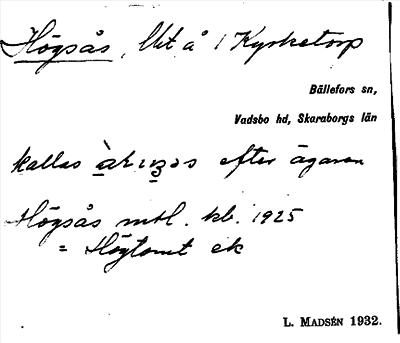 Högsås, lht å / Kyrketorp
Bällefors sn,
Vadsbo hd, Skaraborgs län
kallas efter ägaren
Högsås mtl. kb. 1925
= Högtomt ek
L. MADSÉN 1932.